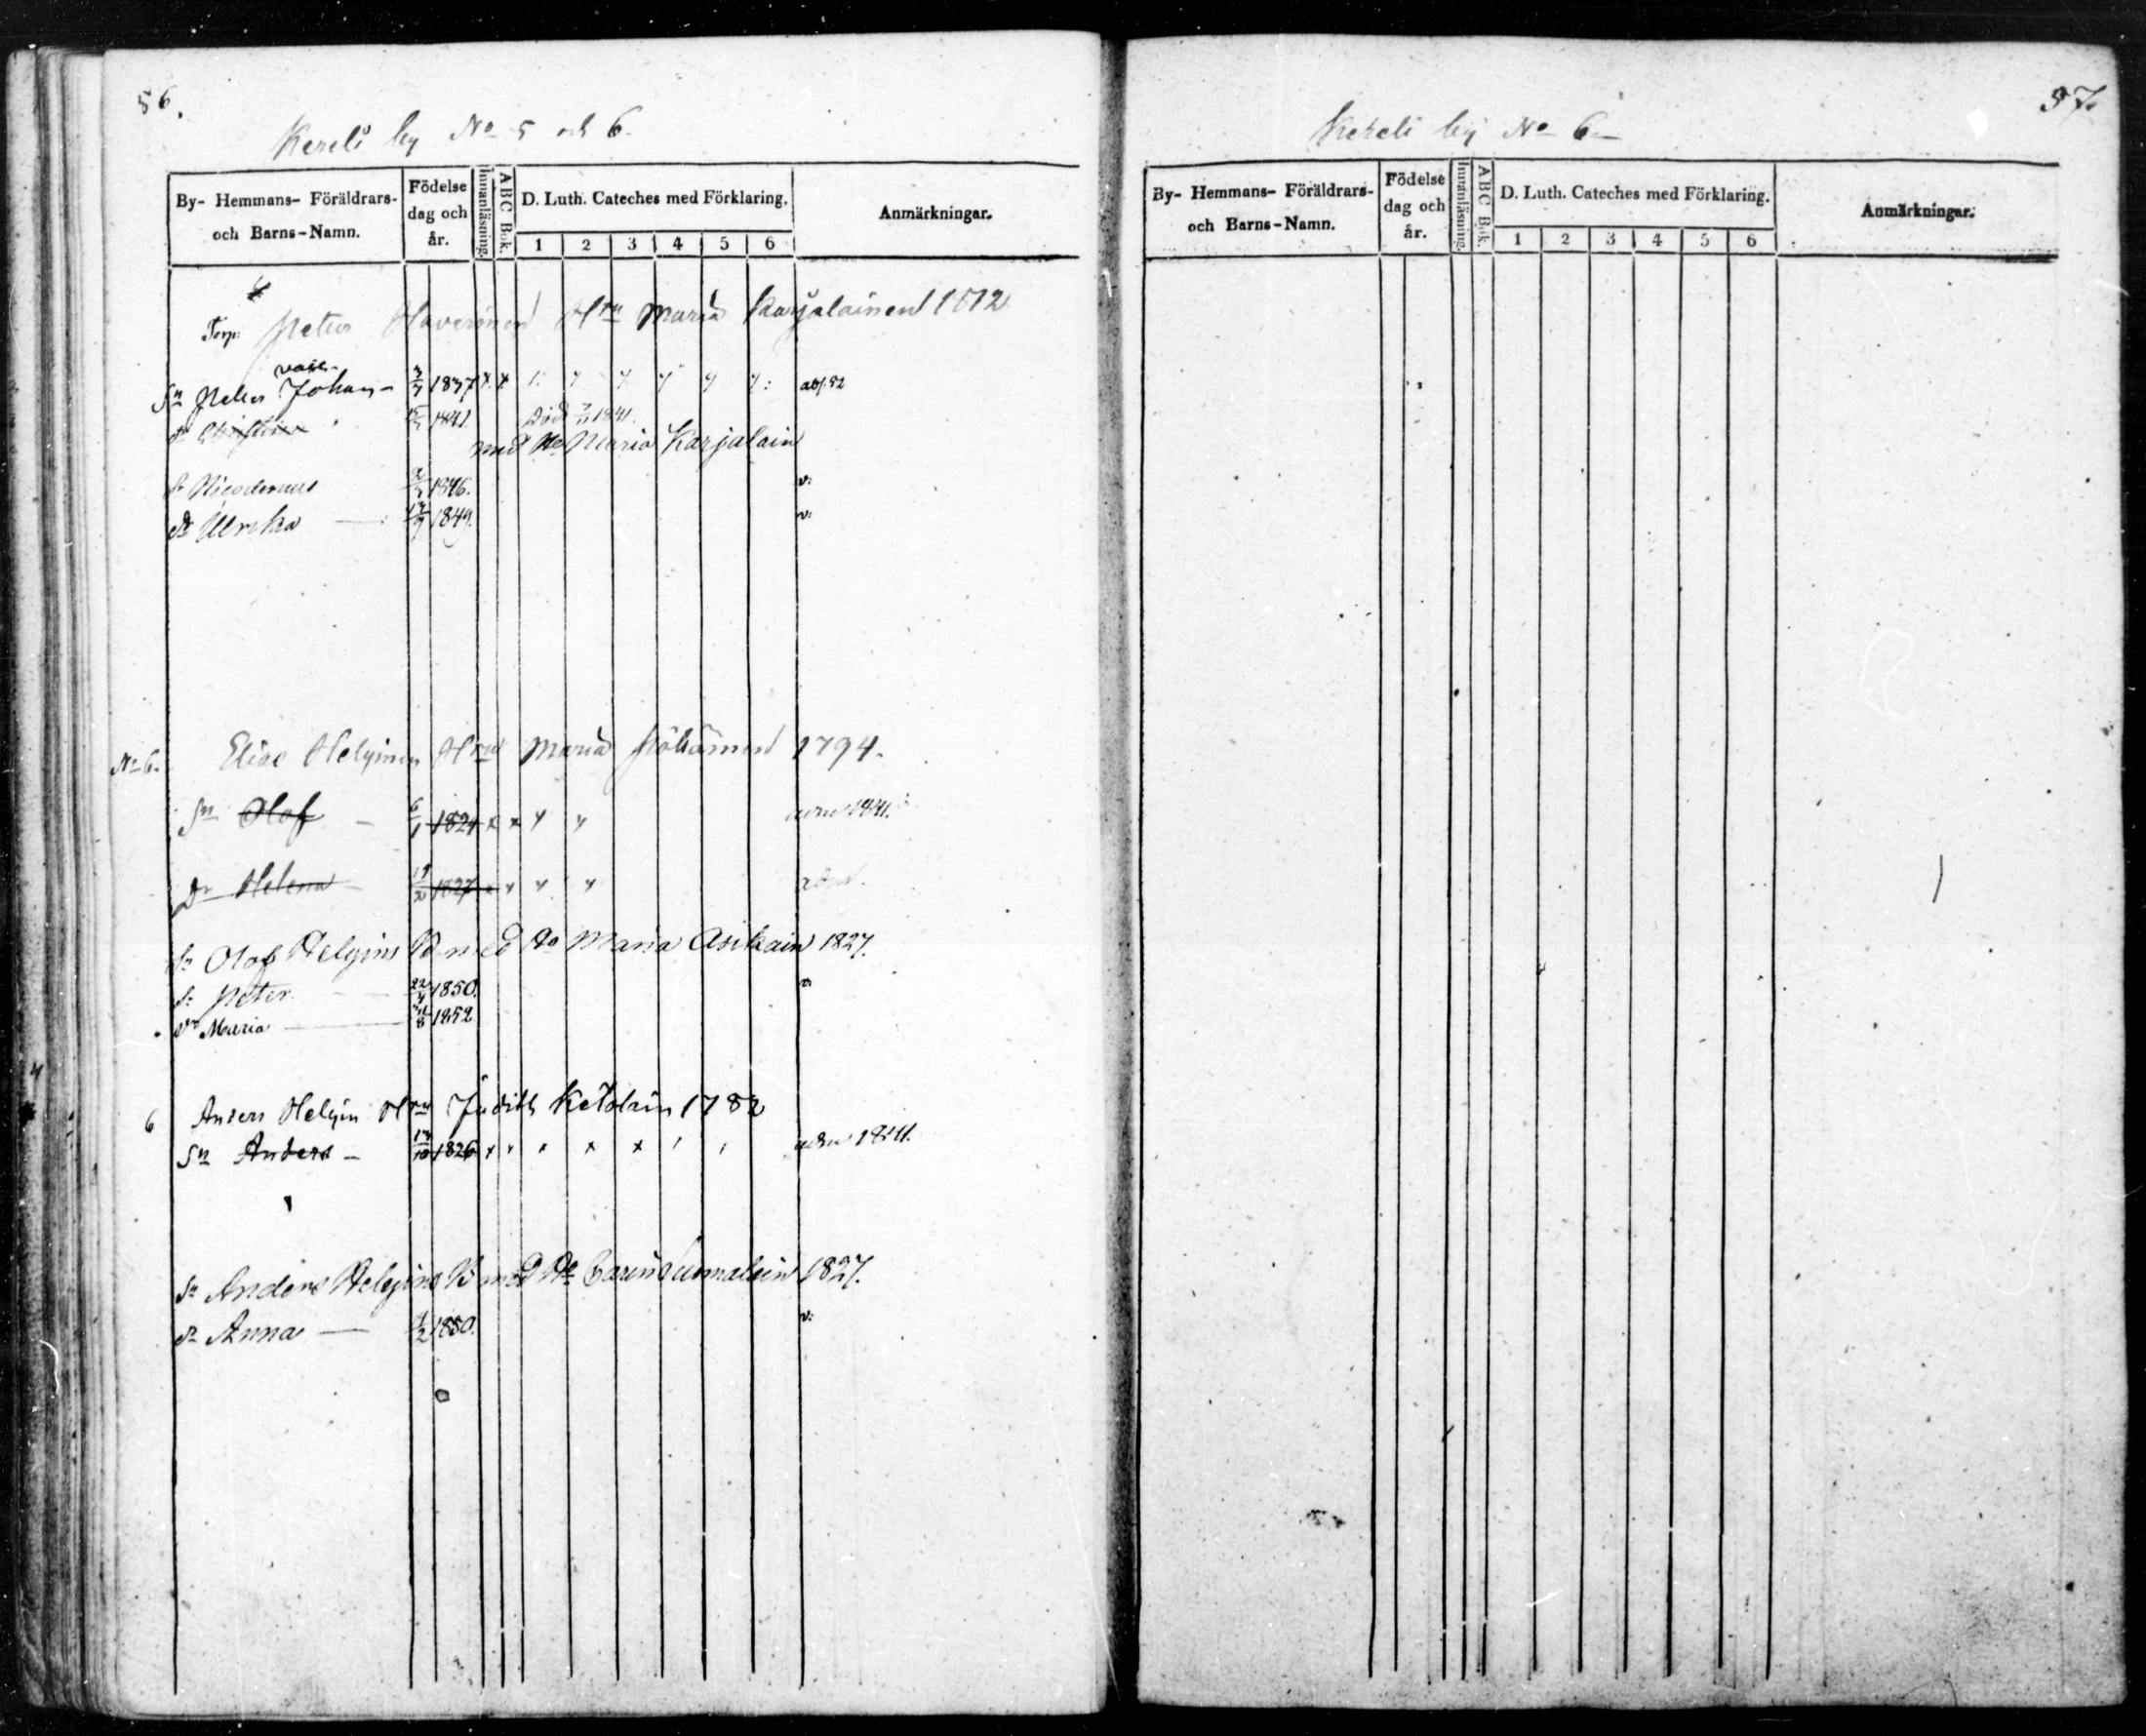 56.
Kereli by No 5 och 6.
By- Hemmans- Föräldrars- och Barns-Namn.
Födelse dag och år.
Innanläsning.
A B C Bok.
D. Luth. Cateches med Förklaring.
1 2 3 4 5 6
Anmärkningar.
Torp. Petter Haverinen Hru Maria Karjalainen 1812
Sn Petter Johan - 3/7 1837 adj. 52
1841 Död 1841.
med Ho Maria Karjalain
Sn Nicodemus 1846. v:
Dr Ulrika 1849. v:
No 6. Elias Helginen Hru Maria 1794.
Sn Olof - 6/1 1824 adm 1841.
Dr Helena - 19/2 1827 adm.
Sn Olof Helgins B med Ho Maria Asikain 1827.
Sn Peter 22/4 1850. v
Dr Maria 1852
6 Anders Helgin Hru Judith Ketolain 1782
Sn Anders - 1826 adm 1841.
Sn Anders Helgins B med Ho Carin 1827.
Dr Anna 1850. v:
57.
Kereli by No 6
By- Hemmans- Föräldrars- och Barns-Namn.
Födelse dag och år.
Innanläsning.
A B C Bok.
D. Luth. Cateches med Förklaring.
1 2 3 4 5 6
Anmärkningar.